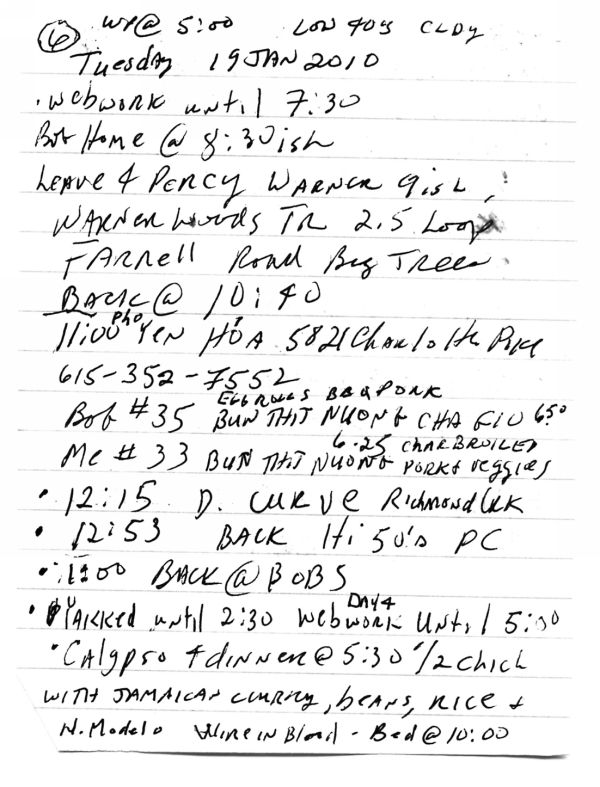 6 up@ 5:00 Low 40s CLDY
Tuesday 19 JAN 2010
• webwork until 7:30
Bob Home @ 8:30ish
Leave 4 PERCY WARNER 9ish,
WARNER Woods TR 2.5 Loop
FARRell Road Big Trees
BACK @ 10:40
11:00 Pho YEN HÒA 5821 Charlotte Pike
615-352-7552
EGG ROLLS BBQ PORK
Bob #35 BUN THIT NUONG CHA GIO 6.50
6.25 CHARBROILED
Me # 33 BUN THIT NUONG PORK & veggies
• 12:15 D. CURVE Richmond CRK
• 12:53 BACK Hi 50's PC
• 1:00 BACK @ BOBS
• YAKKED until 2:30 Webwork DAY 4 Until 5:00
• Calypso 4 dinner @ 5:30 1/2 chick
WITH JAMAICAN CURRY, beans, RICE &
N. Modelo Wire in Blood - Bed @ 10:00